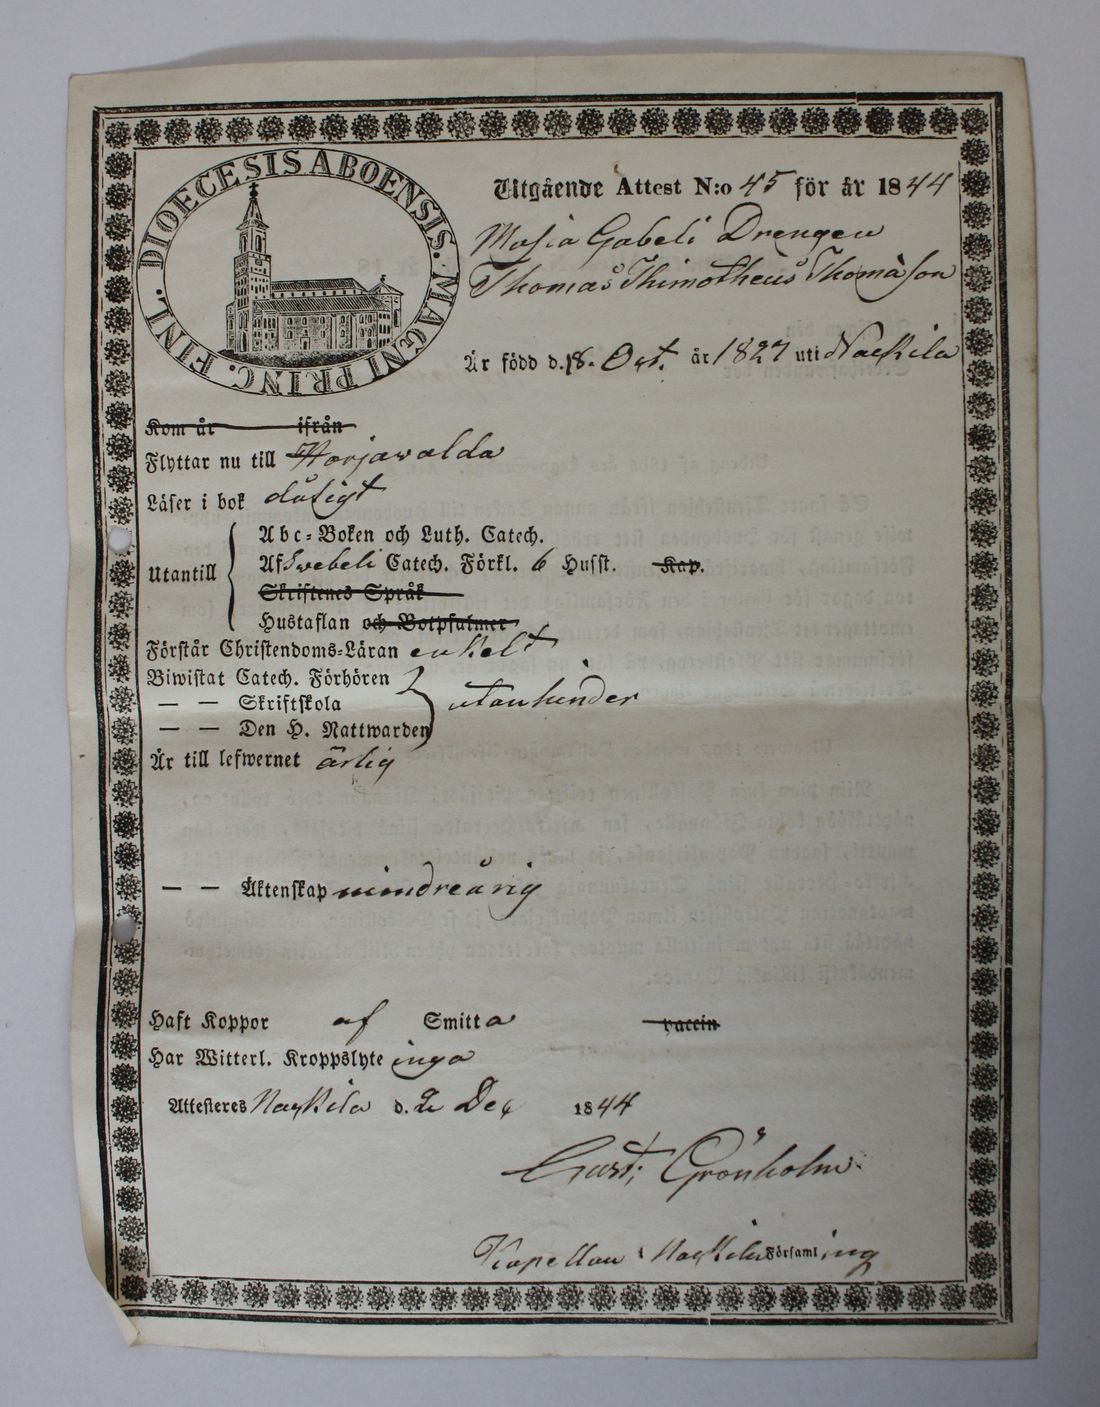 DIOECESIS ABOENSIS. MAGNI PRINC. FINL.
Utgående Attest N:o 45 för år 1844
Masia Gabeli Drengen
Thomas Thimotheus Thomasson
Är född d. 18. Oct. år 1827 uti Nackila
Kom år ifrån
Flyttar nu till Harjawalda
Läser i bok
Abc-Boken och Luth. Catech.
Utantill
Af Swebeli Catech. Förkl. 6 Husst. Kap.
Skriftenes Språk
Hustaflan och Botpsalmer
Förstår Christendoms-Läran enkelt
Biwistat Catech. Förhören
— — Skriftskola utan hinder
— — Den H. Nattwarden
Är till lefwernet ärlig
— — Äktenskap mindreårig
Haft Koppor af Smitta vaccin
Har Witterl. Kroppslyte inga
Attesteres Nackila d. 2 Dec 1844
Gust. Grönholm
Kapellan i Nackila Församling